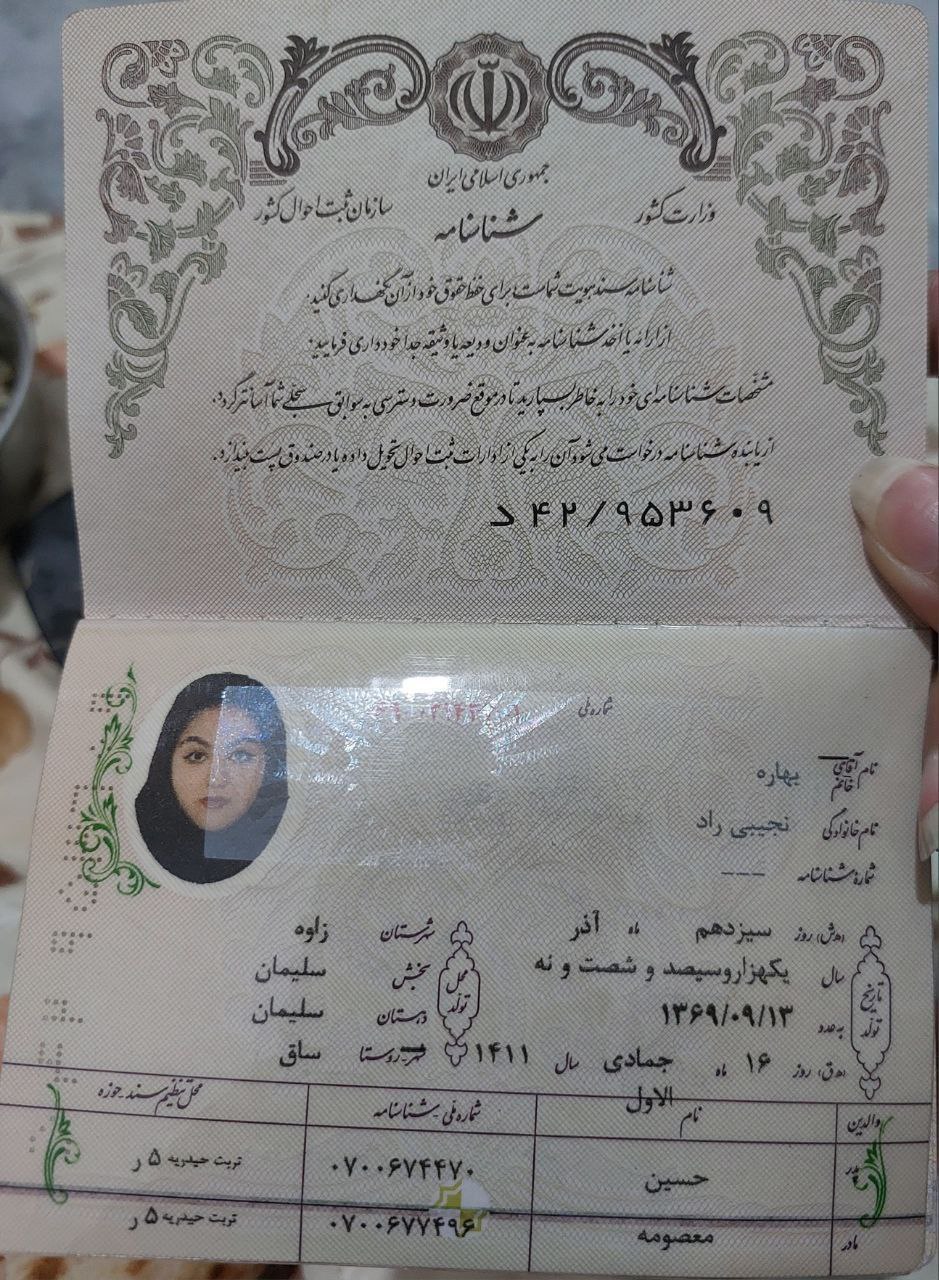 جمهوری اسلامی ایران
وزارت کشور
سازمان ثبت احوال کشور
شناسنامه
شناسنامه سند هویت شماست برای حفظ حقوق خود از آن نگهداری کنید.
از ارائه یا اخذ شناسنامه به عنوان ودیعه یا وثیقه جدا خودداری فرمایید.
مشخصات شناسنامه‌ای خود را به خاطر بسپارید تا در موقع ضرورت دسترسی به سوابق سجلی شما آسانتر گردد.
از یابنده شناسنامه درخواست می‌شود آن را به یکی از ادارات ثبت احوال تحویل داده یا در صندوق پست بیندازد.
د ۴۲/۹۵۳۶۰۹
شماره ملی
نام آقای خانم بهاره
نام خانوادگی نجیبی راد
شماره شناسنامه ---
تاریخ تولد
(ه.ش) روز سیزدهم ماه آذر
سال یکهزار و سیصد و شصت و نه
به عدد ۱۳۶۹/۰۹/۱۳
(ه.ق) روز ۱۶ ماه جمادی الاول سال ۱۴۱۱
محل تولد
شهرستان زاوه
بخش سلیمان
دهستان سلیمان
شهر روستا ساق
والدین نام شماره ملی شناسنامه محل تنظیم سند حوزه
پدر حسین ۰۷۰۰۶۷۴۴۷۰ تربت حیدریه ۵ ر
مادر معصومه ۰۷۰۰۶۷۷۴۹۶ تربت حیدریه ۵ ر